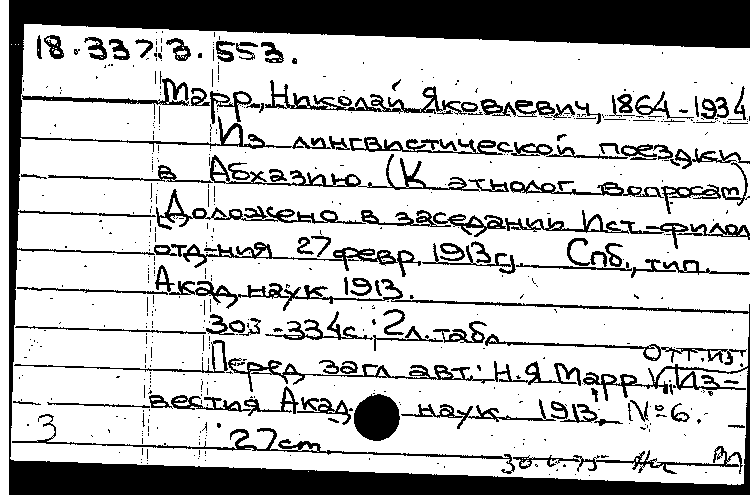 18.337.3.553.
Марр, Николай Яковлевич, 1864-1934
Из лингвистической поездки
в Абхазию. (К этнолог. вопросам)
[Доложено в заседании Ист.-филол
отд-ния 27 февр. 1913г]. Спб., тип.
Акад. наук, 1913.
303-334с.; 2 л. табл.
Отт. из.
Перед загл. авт.: Н.Я Марр. "Из-
вестия Акад. наук. 1913, №6.
3
27cm.